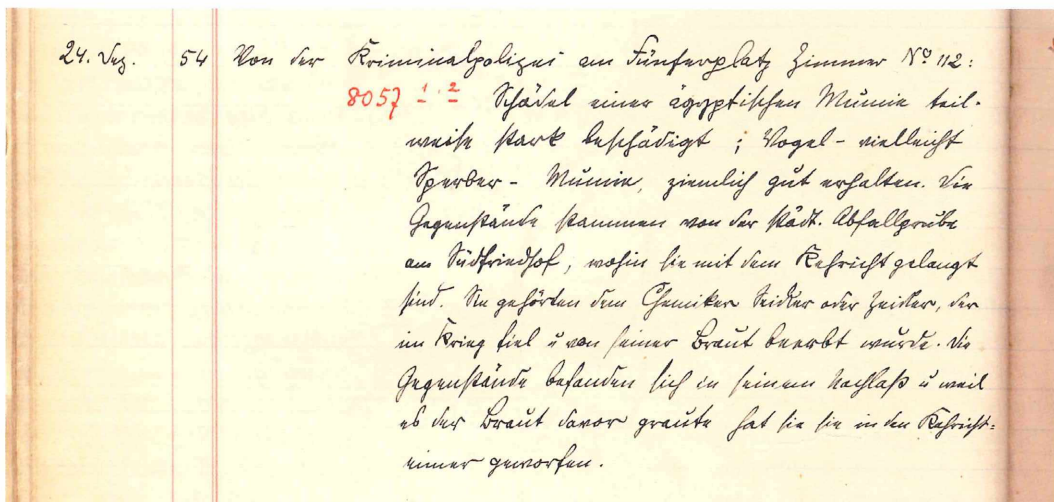 24. Dez. 54 Von der Kriminalpolizei am Fünferplatz Zimmer No 112:
8057 1 . 2 Schädel einer ägyptischen Mumie teil-
weise stark beschädigt ; Vogel - vielleicht
Sperber - Mumie, ziemlich gut erhalten. Die
Gegenstände stammen von der städt. Abfallgrube
am Südfriedhof, wohin sie mit dem Kehricht gelangt
sind. Sie gehörten dem Chemiker Seidler oder Zeidler, der
im Krieg fiel u von seiner Braut beerbt wurde. Die
Gegenstände befanden sich in seinem Nachlaß u weil
es der Braut davor graute hat sie sie in den Kehricht-
eimer geworfen.